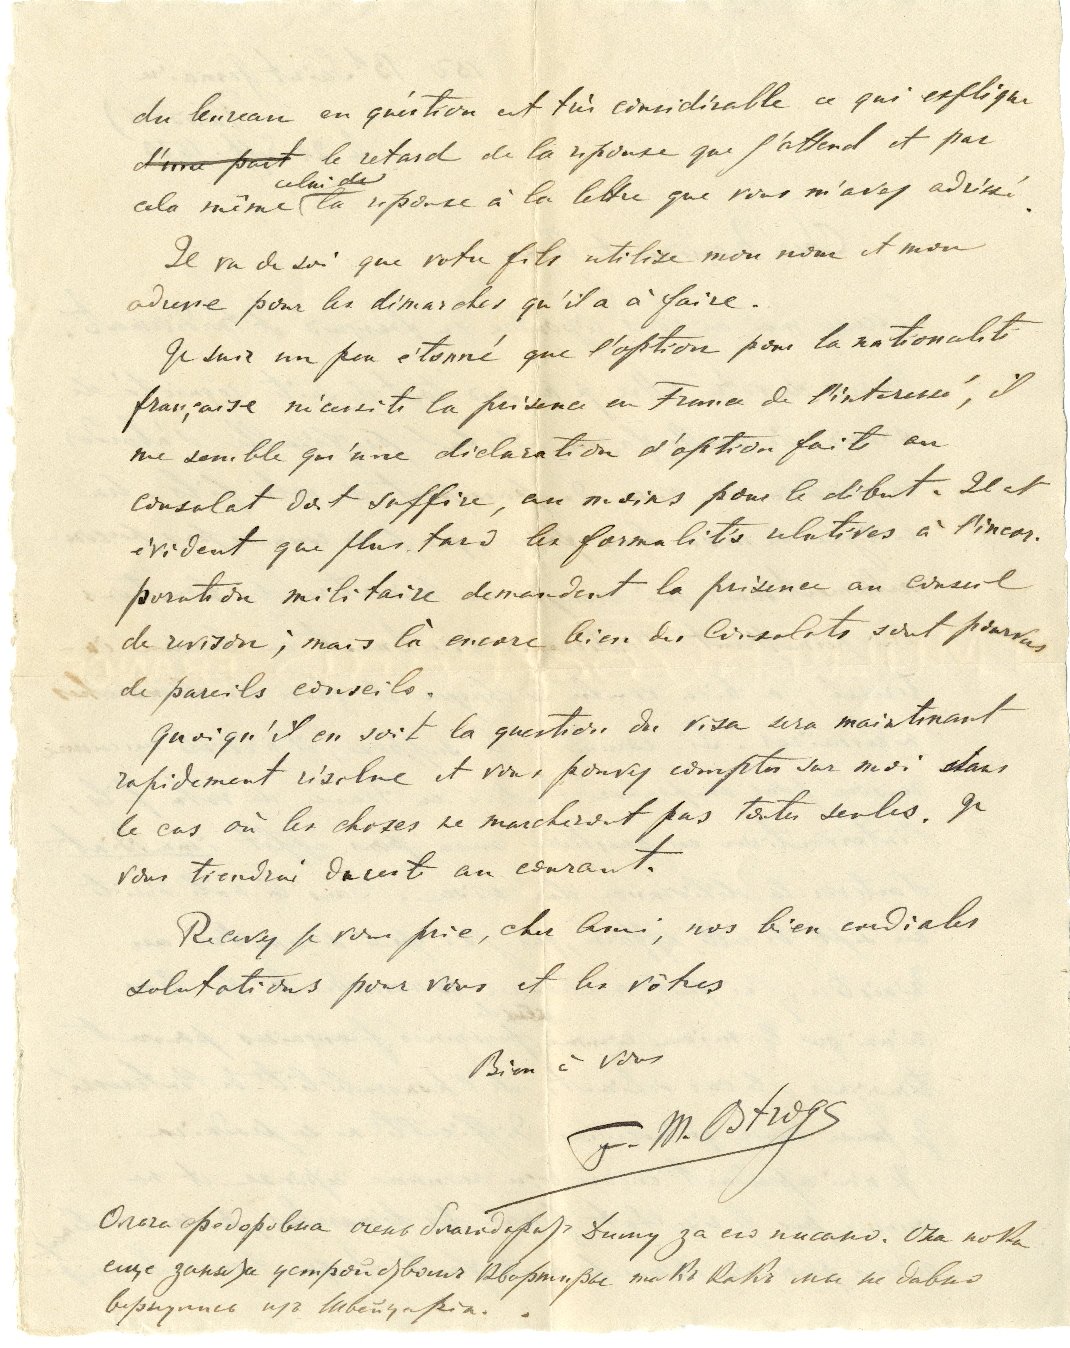 du bureau en question est très considérable ce qui explique
d'une part le retard de la réponse que j'attend et par
celui de
cela même la réponse à la lettre que vous m'avez adressé.
Il va de soi que votre fils utilise mon nom et mon
adresse pour les démarches qu'il a à faire.
Je suis un peu étonné que l'option pour la nationalité
française nécessite la présence en France de l'interessé, il
me semble qu'une déclaration d'option faite au
consulat doit suffire, au moins pour le début. Il est
évident que plus tard les formalités relatives à l'incor-
poration militaire demandent la présence au conseil
de revison; mais là encore bien des Consulats sont pourvus
de pareils conseils.
Quoiqu'il en soit la question du visa sera maintenant
rapidement résolue et vous pouvez compter sur moi dans
le cas où les choses ne marcheront pas toutes seules. Je
vous tiendrai du reste au courant.
Recevez je vous prie, cher Ami, nos bien cordiales
salutations pour vous et les vôtres
Bien à vous
M. Ostroga
Ольга Федоровна очень благодаритъ Диму за его писмо. Она пока
еще занята устройствомъ квартиры такъ какъ мы не давно
вернулись изъ Швейцаріи.